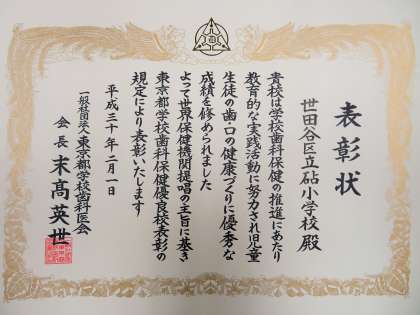 表彰状
世田谷区立砧小学校 殿
貴校は学校歯科保健の推進にあたり
教育的な実践活動に努力され児童
生徒の歯・口の健康づくりに優秀な
成績を修められました
よって世界保健機関提唱の主旨に基き
東京都学校歯科保健優良校表彰の
規定により表彰いたします
平成三十年二月一日
一般社団法人東京都学校歯科医会
会長 末髙英世